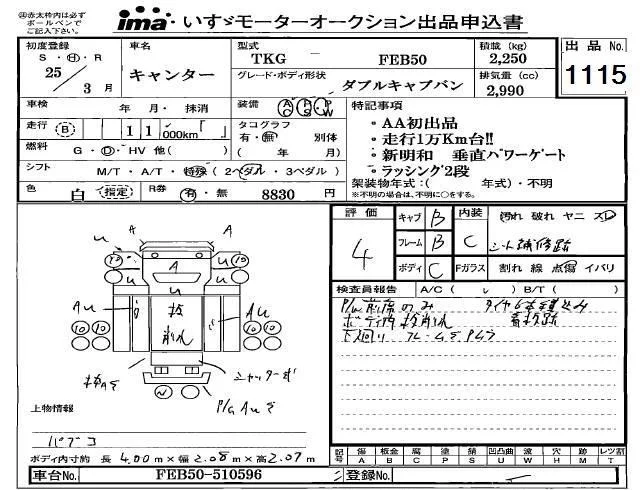 ㊟赤太枠内は必ず
ボールペンで
ご記入下さい。
ima・いすゞモーターオークション出品申込書
初度登録
S・H・R
25 / 3 月
車名
キャンター
型式
TKG FEB50
グレード・ボディ形状
ダブルキャブバン
積載 (kg)
2,250
排気量 (cc)
2,990
出品 No.
1115
車検 年 月・抹消
装備 A/C P/S P/W
走行 (B) 11,000km「 」
タコグラフ
有・無 別体
( 年 月)
燃料 G・D・HV 他( )
シフト M/T・A/T・特殊 (2ペダル・3ペダル)
色 白 (指定)
R券 有・無 8830 円
特記事項
・AA初出品
・走行1万Km台!!
・新明和 垂直パワーゲート
・ラッシング2段
架装物年式:( 年式)・不明
※不明の場合は、不明に○をする。
評価
4
キャブ B
フレーム B
ボディ C
内装 C
汚れ 破れ ヤニ スレ
シート補修跡
Fガラス 割れ 線 点傷 イバリ
検査員報告 A/C( レ ) B/T( )
P/W前席のみ
ボディ内
下回り
A
u
A
u
A
A
u
u
u
u
Au
Au
10
10
10
10
N
P/G Auξ
上物情報
パブコ
ボディ内寸約 長 4.00 m×幅 2.08 m×高 2.07 m
記号
傷 板金 腐 塗 錆 凹凸曲 波 穴 跡 レツ割
A B C P S U W H M T
車台No. FEB50-510596
登録No.